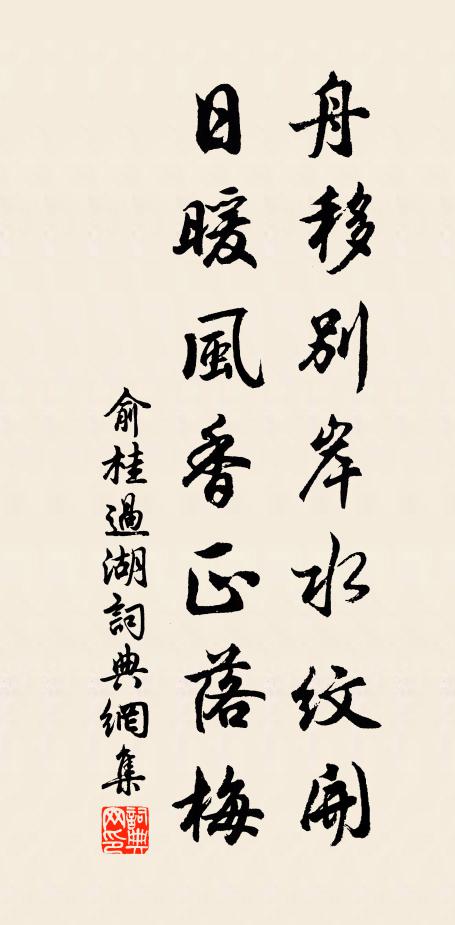 舟移別岸水紋開
日暖風香正落梅
俞桂過湖詞典網集
詞典網印